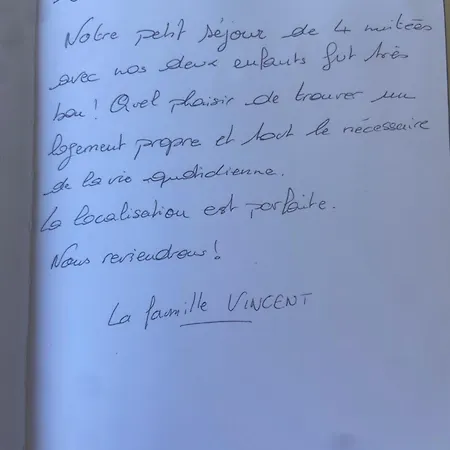 Notre petit séjour de 4 nuitées
avec nos deux enfants fut très
bon! Quel plaisir de trouver un
logement propre et tout le nécessaire
de la vie quotidienne.
La localisation est parfaite.
Nous reviendrons!
La famille VINCENT